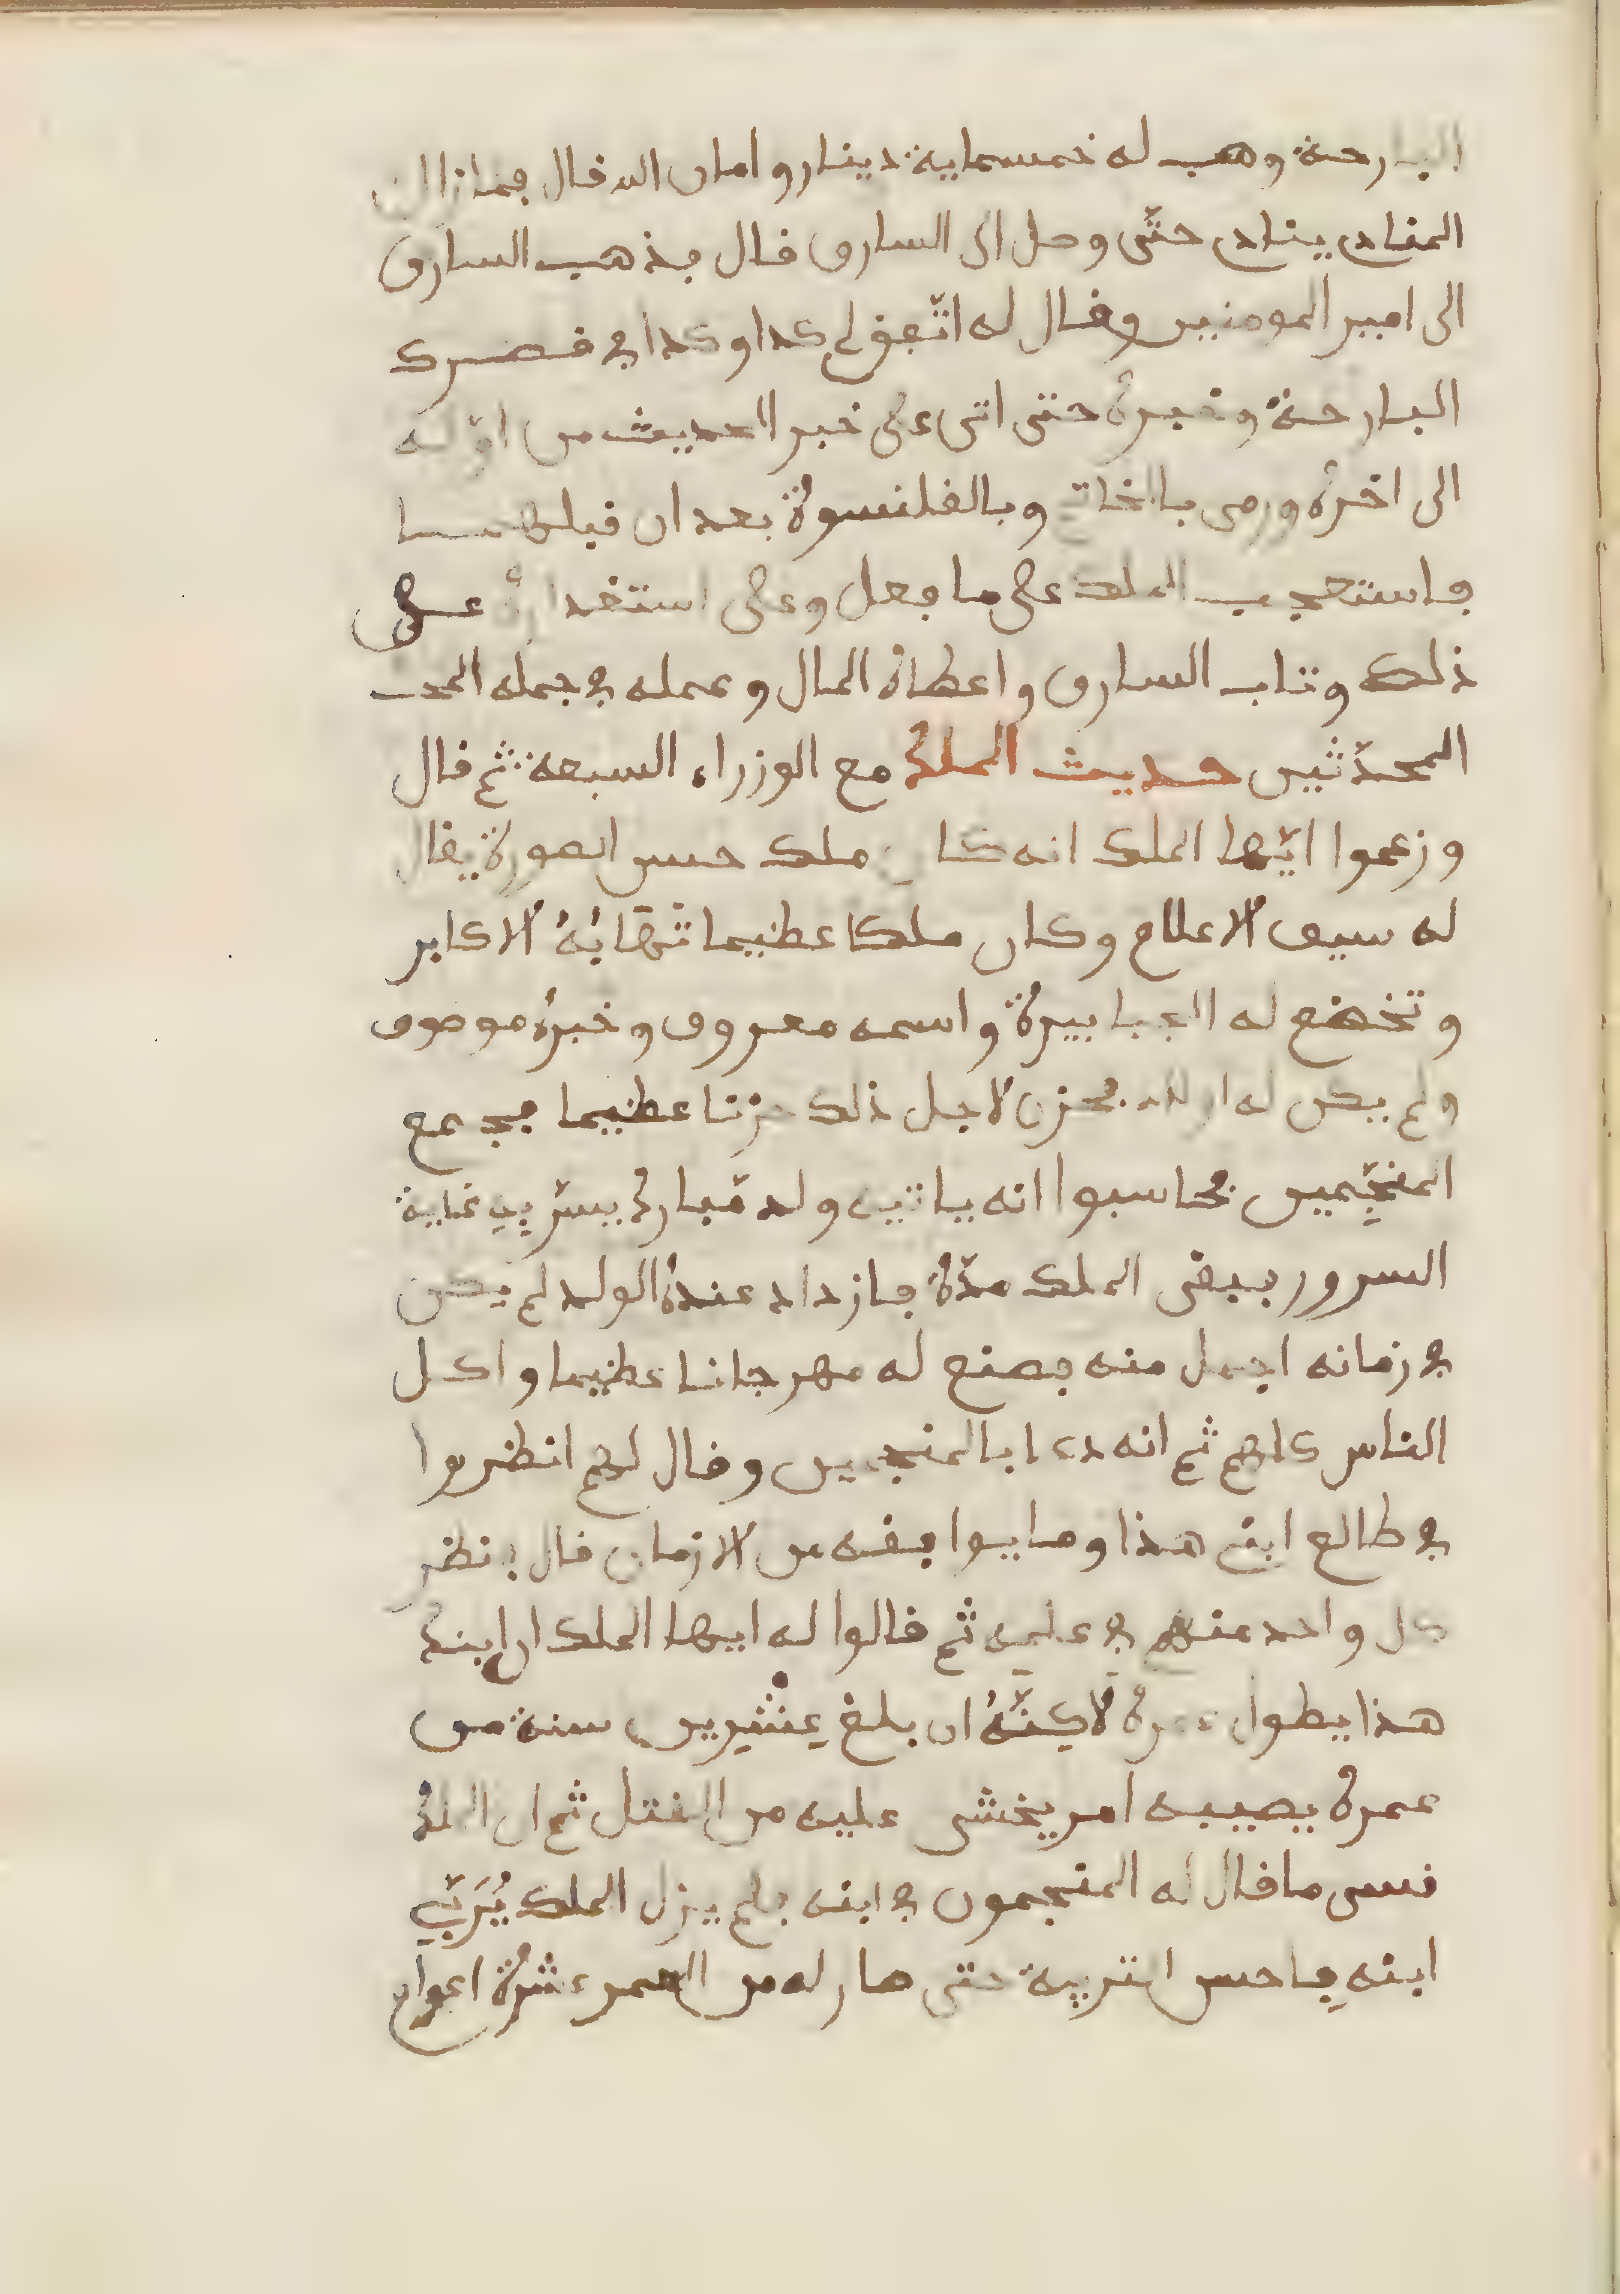 البارحة وهب له خمسماية دينار وامان الله قال فمازال
المنادي ينادي حتّى وصل الى السارق قال فذهب السارق
الى امير المومنين وقال له اتّفق لي كدا وكدا في قصرك
البارحة وخبره حتى اتى على خبر الحديث من اوّله
الى اخره ورمى بالخاتم وبالقلنسوة بعد ان قبلهمـــا
فاستعجب الملك على ما فعل وعلى استقداره على
ذلك وتاب السارق واعطاه المال وعمله في جمله المحد
المحدّثين حديث الملك مع الوزراء السبعة ثم قال
وزعموا ايّها الملك انه كان ملك حسن الصورة يقال
له سيف الاعلام وكان ملكا عظيما تهابُهُ الاكابر
وتخضع له الجبابيرة واسمه معروف وخبره موصوف
ولم يكن له اولاد فحزن لاجل ذلك حزنا عظيما فجمع
المنجّمين فحاسبوا انه ياتيه ولد مبارك يسرّ بِه غاية
السرور فبقى الملك مدّة فازداد عنده الولد لم يكن
في زمانه اجمل منه فصنع له مهرجانا عظيما واكل
الناس كلهم ثم انه دعا بالمنجمين وقال لهم انظروا
في طالع ابني هذا وما يوافقه من الازمان قال فنظر
كل واحد منهم في علمه ثم قالوا له ايها الملك ان ابنك
هذا يطول عمره لاكِنَّهُ ان بلغ عِشْرِين سنة من
عمره يصيبه امر يخشى عليه من القتل ثم ان الملك
نسى ما قال له المنجمون في ابنه فلم يزل الملك يُرَبّي
ابنه بِاحسن التربية حتى صار له من العمر عشرة اعوام